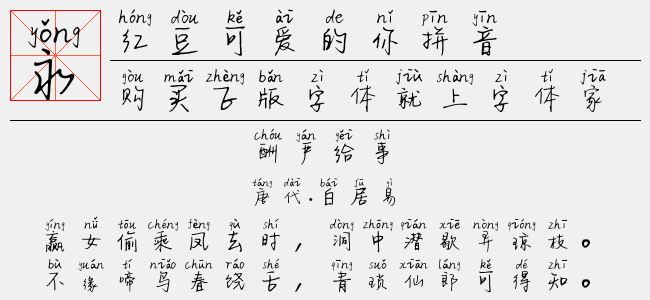 yǒng
永
hóng dòu kě ài de nǐ pīn yīn
红豆可爱的你拼音
gòu mǎi zhèng bǎn zì tǐ jiù shàng zì tǐ jiā
购买正版字体就上字体家
chóu yán gěi shì
酬严给事
táng dài bái jū yì
唐代.白居易
yíng nǚ tōu chéng fèng qù shí dòng zhōng qián xiē nòng qióng zhī
嬴女偷乘凤去时，洞中潜歇弄琼枝。
bù yuán tí niǎo chūn ráo shé qīng suǒ xiān láng kě dé zhī
不缘啼鸟春饶舌，青琐仙郎可得知。